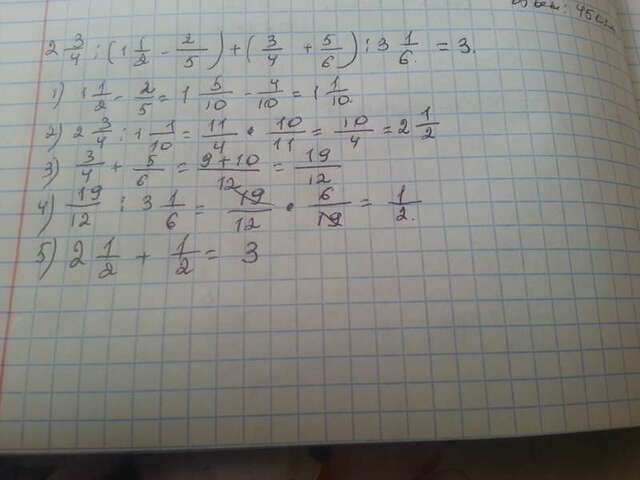 2 3/4 : (1 1/2 - 2/5) + (3/4 + 5/6) : 3 1/6 = 3.
1) 1 1/2 - 2/5 = 1 5/10 - 4/10 = 1 1/10.
2) 2 3/4 : 1 1/10 = 11/4 • 10/11 = 10/4 = 2 1/2
3) 3/4 + 5/6 = 9+10/12 = 19/12
4) 19/12 : 3 1/6 = 19/12 • 6/19 = 1/2.
5) 2 1/2 + 1/2 = 3